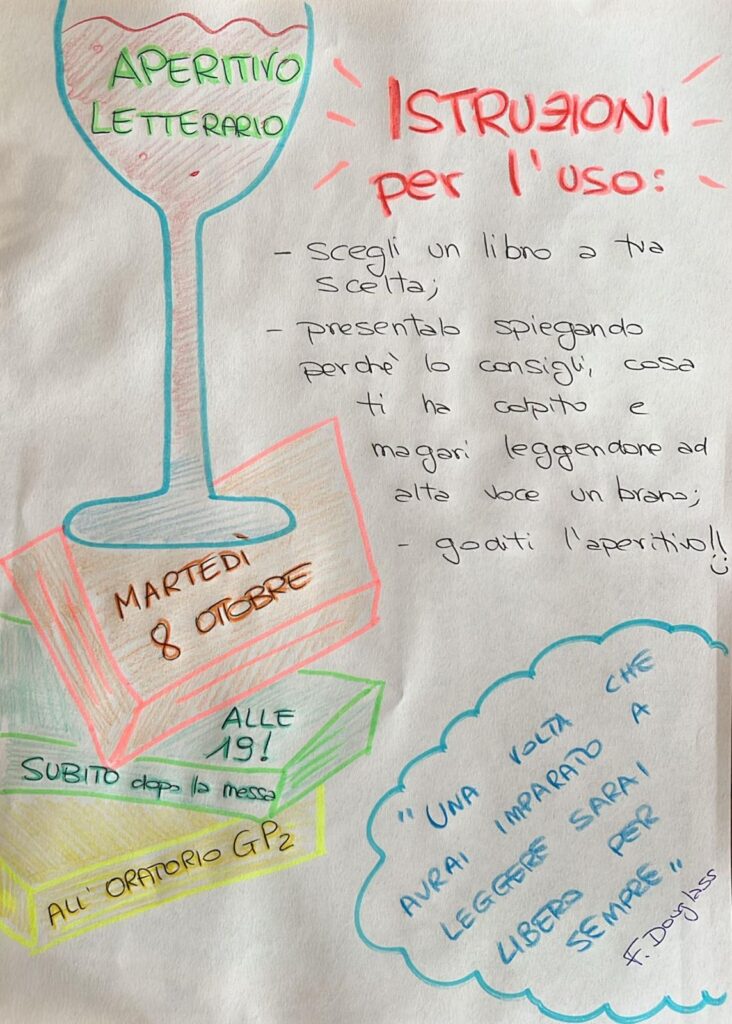 APERITIVO
LETTERARIO
ISTRUZIONI
per l'uso:
- scegli un libro a tua
scelta;
- presentalo spiegando
perchè lo consigli, cosa
ti ha colpito e
magari leggendone ad
alta voce un brano;
- goditi l'aperitivo!!
MARTEDÌ
8 OTTOBRE
ALLE
19!
SUBITO dopo la messa
ALL' ORATORIO GP2
"UNA VOLTA CHE
AVRAI IMPARATO A
LEGGERE SARAI
LIBERO PER
SEMPRE"
F. Douglass